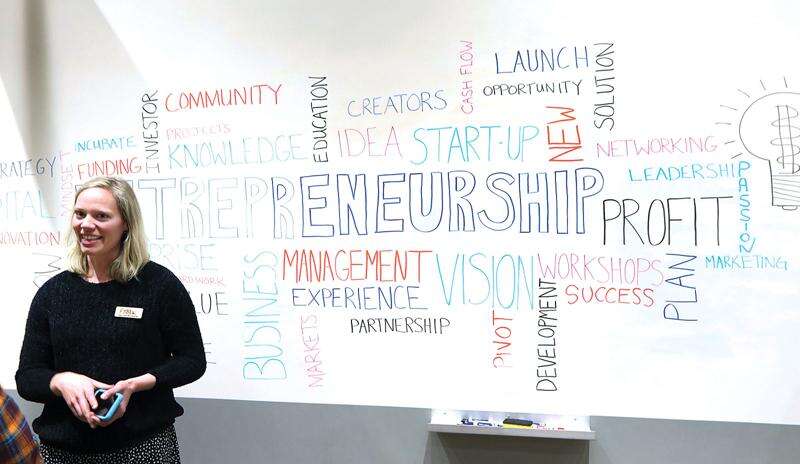 LAUNCH
SOLUTION
CASH FLOW
OPPORTUNITY
INVESTOR
COMMUNITY
EDUCATION
CREATORS
NEW
PROJECTS
INCUBATE
KNOWLEDGE
IDEA
START-UP
NETWORKING
RATEGY
MINDSET
FUNDING
LEADERSHIP
PASSION
PITAL
TREPRENEURSHIP
PROFIT
NOVATION
RISE
BUSINESS
MANAGEMENT
VISION
WORKSHOPS
PLAN
MARKETING
RDWORK
LUE
EXPERIENCE
SUCCESS
MARKETS
PARTNERSHIP
PIVOT
DEVELOPMENT